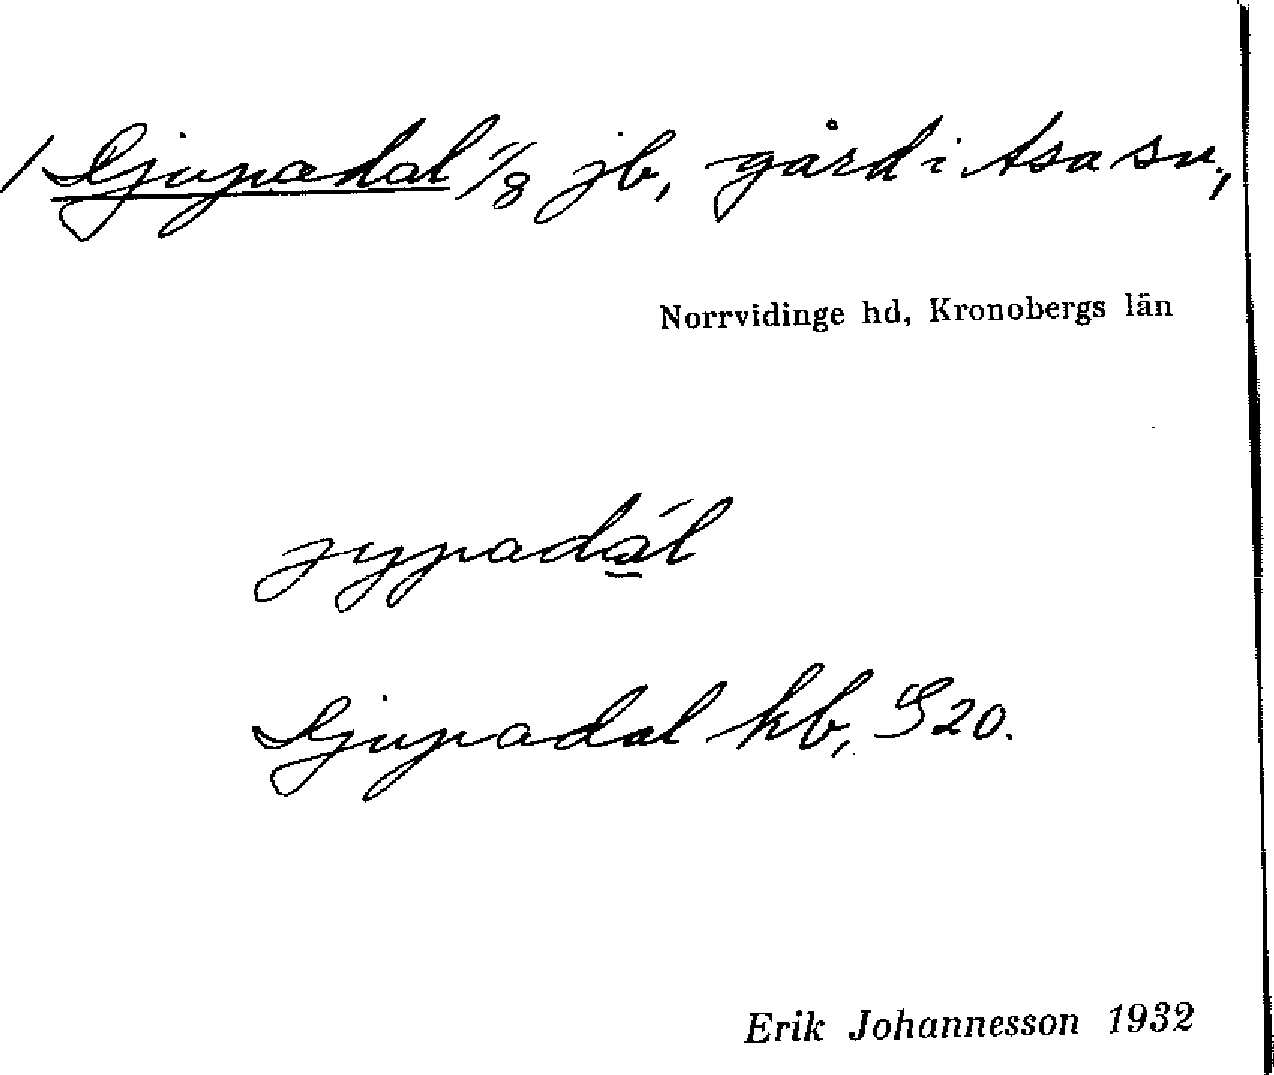 / Djupadal 1/8 jb, gård i Asa sn,
Norrvidinge hd, Kronobergs län
jypadál
Djupadal kb, S20.
Erik Johannesson 1932